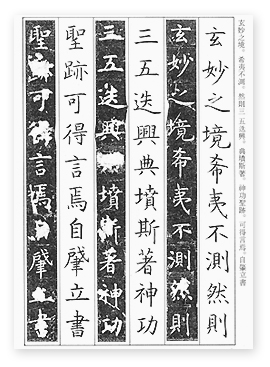 玄妙之境。希夷不測。然則三五迭興。典墳斯著。神功聖跡。可得言焉。自肇立書
玄妙之境希夷不測然則
玄妙之境希夷不測然則
三五迭興典墳斯著神功
三五迭興典墳斯著神功
聖跡可得言焉自肇立書
聖跡可得言焉自肇立書